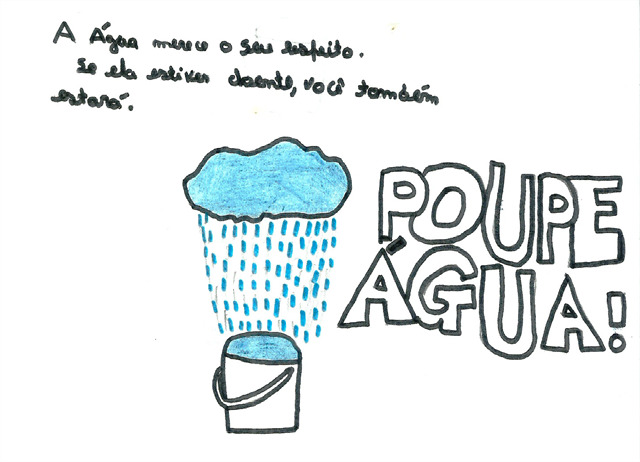 A Água merece o seu respeito.
Se ela estiver doente, você também
estará.
POUPE
ÁGUA!